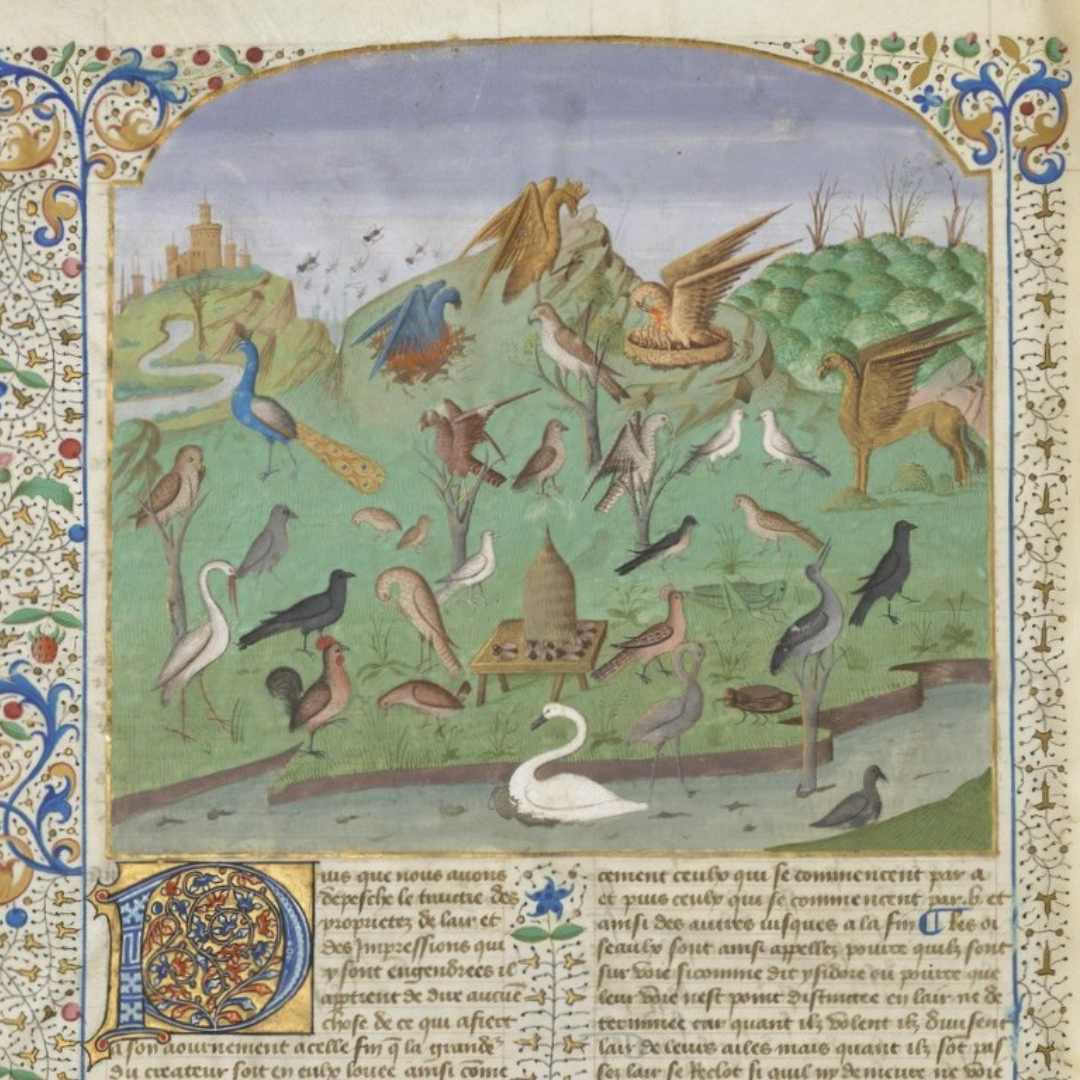 Puis que nous auons
depesche le traittie des
proprietez de lair et
des Impressions qui
y sont engendrees il
apptient de dire aucuē
chose de ce qui affiert
a son aournement acelle fin q̄ la grande
du createur soit en eulx louee ainsi cōme
cement ceulx qui se commencent par a
et puis ceulx qui se commencent par. b. et
ainsi des autres iusques a la fin ¶ Les oi
seaulx sont ainsi appellez pource quilz sont
sur voie sicomme dit ysidore ou pource que
leur voie nest point distinctee en lair ne de
terminee car quant ilz volent ilz diuisent
lair de leurs ailes mais quant ilz sōt pas
sez lair se Reclot si quil ny demeure ne voie